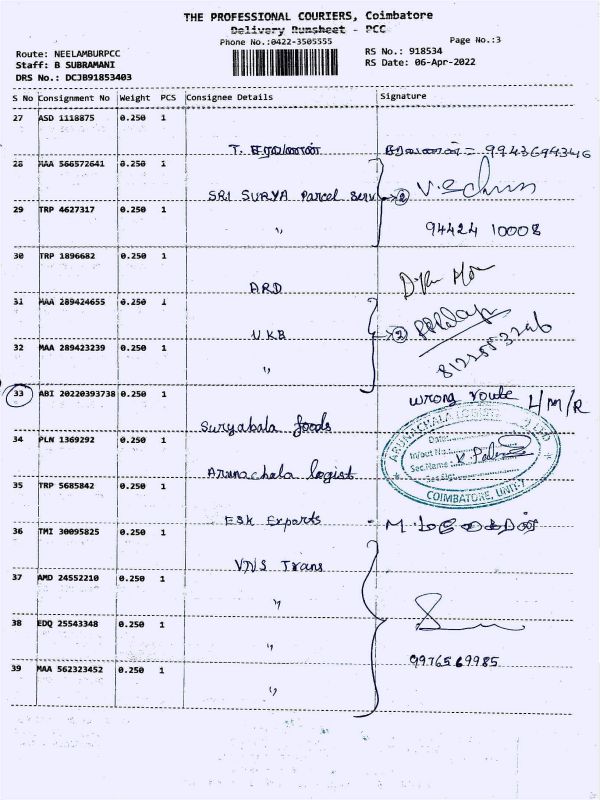 THE PROFESSIONAL COURIERS, Coimbatore
Delivery Runsheet - PCC
Phone No.:0422-3505555
Page No.:3
Route: NEELAMBURPCC
Staff: B SUBRAMANI
DRS No.: DCJB91853403
RS No.: 918534
RS Date: 06-Apr-2022
S No Consignment No Weight PCS Consignee Details Signature
27 ASD 1118875 0.250 1
T. சரவணன் சரவணன் = 9943694346
28 MAA 566572641 0.250 1
SRI SURYA Parcel Serv 2
29 TRP 4627317 0.250 1
" 94424 10008
30 TRP 1896682 0.250 1
ARD
31 MAA 289424655 0.250 1
VKB 2
32 MAA 289423239 0.250 1
"
33 ABI 20220393738 0.250 1
Suryabala foods wrong route H/M/R
34 PLN 1369292 0.250 1
Arunachala logist
ARUNACHALA LOGIST LTD
Date:
In/out No.
Sec.Name
COIMBATORE, UNIT-7
35 TRP 5685842 0.250 1
ESK Exports
36 TMI 30095825 0.250 1
VNS Trans
37 AMD 24552210 0.250 1
"
38 EDQ 25543348 0.250 1
" 9976569985
39 MAA 562323452 0.250 1
"